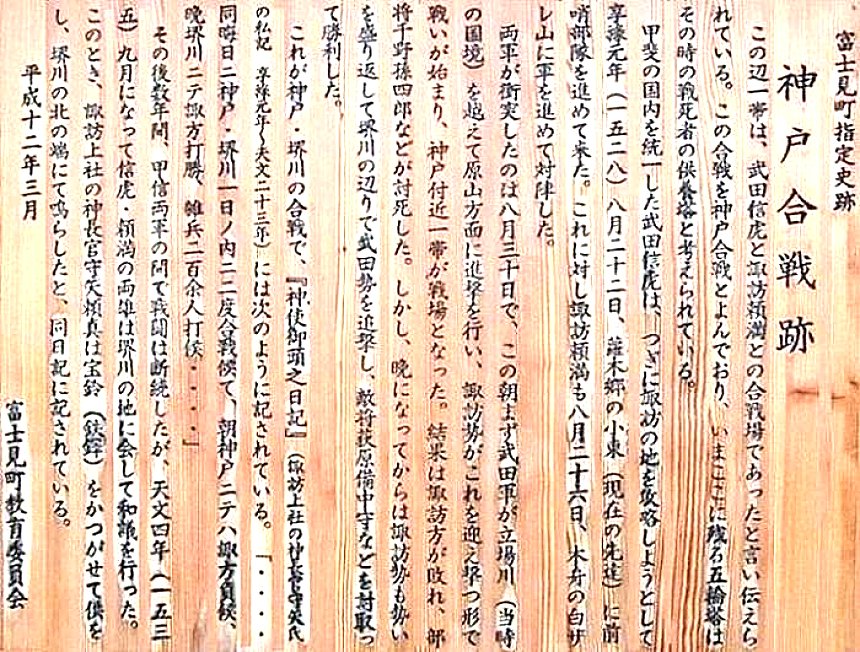 富士見町指定史跡
神戸合戦跡
この辺一帯は、武田信虎と諏訪頼満との合戦場であったと言い伝えら
れている。この合戦を神戸合戦とよんでおり、いまここに残る五輪塔は
その時の戦死者の供養塔と考えられている。
甲斐の国内を統一した武田信虎は、つぎに諏訪の地を攻略しようとして
享禄元年（一五二八）八月二十二日、蘿木郷の小東（現在の先達）に前
哨部隊を進めて来た。これに対し諏訪頼満も八月二十六日、木舟の白ザ
レ山に軍を進めて対陣した。
両軍が衝突したのは八月三十日で、この朝まず武田軍が立場川（当時
の国境）を越えて原山方面に進撃を行い、諏訪勢がこれを迎え撃つ形で
戦いが始まり、神戸付近一帯が戦場となった。結果は諏訪方が敗れ、部
将千野孫四郎などが討死した。しかし、晩になってからは諏訪勢も勢い
を盛り返して堺川の辺りで武田勢を追撃し、敵将荻原備中守などを討取っ
て勝利した。
これが神戸・堺川の合戦で、『神使御頭之日記』（諏訪上社の神長官守矢氏
の私記 享禄元年～天文二十三年）には次のように記されている。「・・・・
同晦日ニ神戸・堺川一日ノ内ニ二度合戦候て、朝神戸ニテハ諏方負候、
晩堺川ニテ諏方打勝、雑兵二百余人打候・・・・」
その後数年間、甲信両軍の間で戦闘は断続したが、天文四年（一五三
五）九月になって信虎・頼満の両雄は堺川の地に会して和議を行った。
このとき、諏訪上社の神長官守矢頼真は宝鈴（鉄鐸）をかつがせて供を
し、堺川の北の端にて鳴らしたと、同日記に記されている。
平成十二年三月
富士見町教育委員会